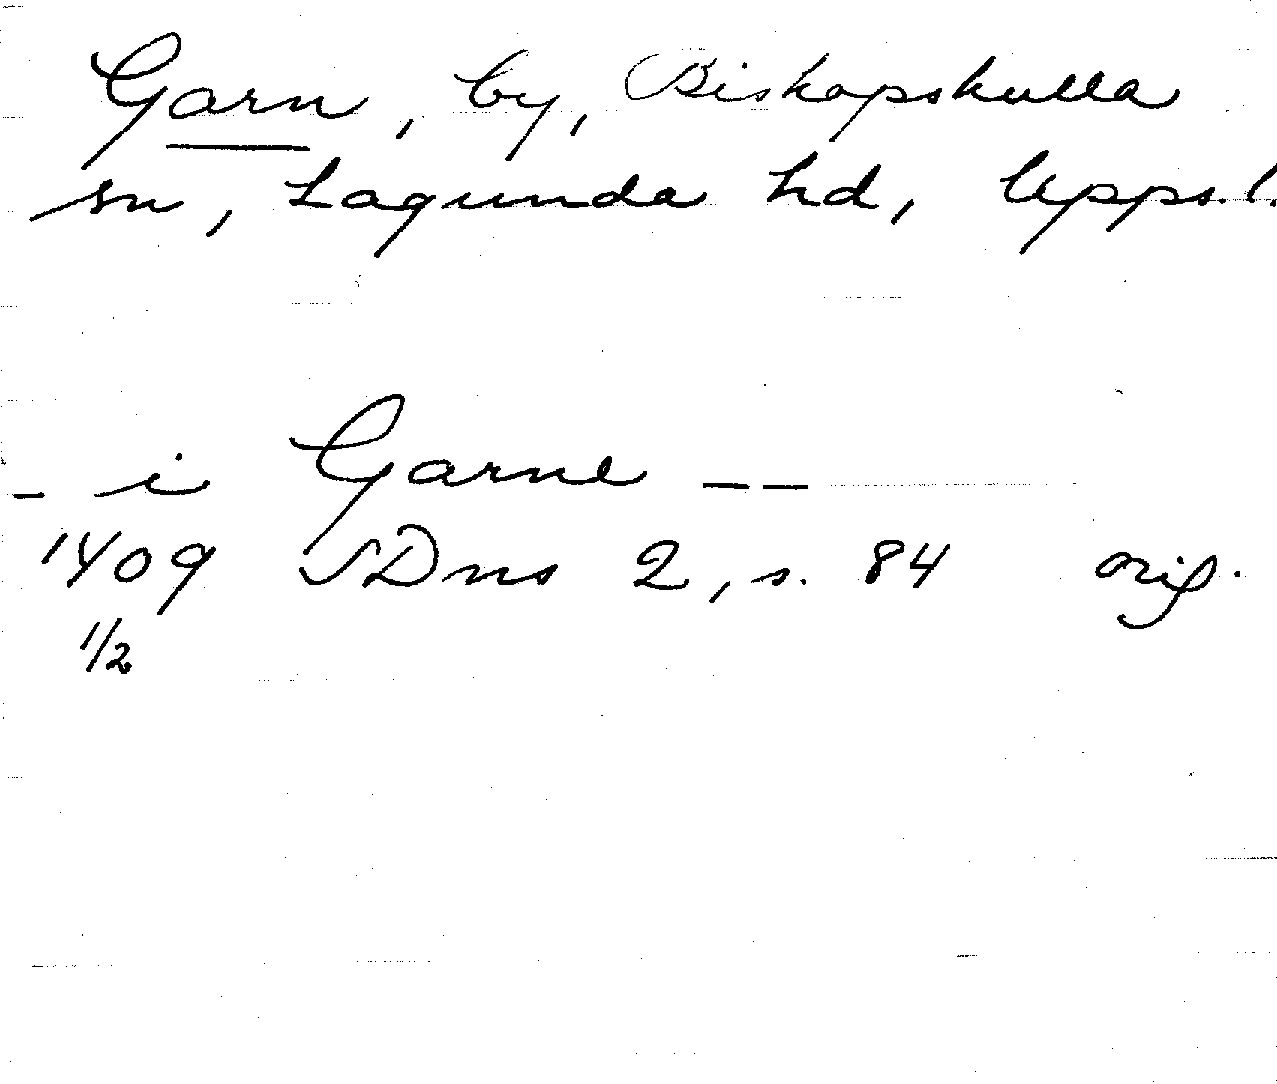 Garn, by, Biskopskulla
sn, Lagunda hd, Upps. l.
- i Garne - -
1409 SDns 2, s. 84 orig.
1/2